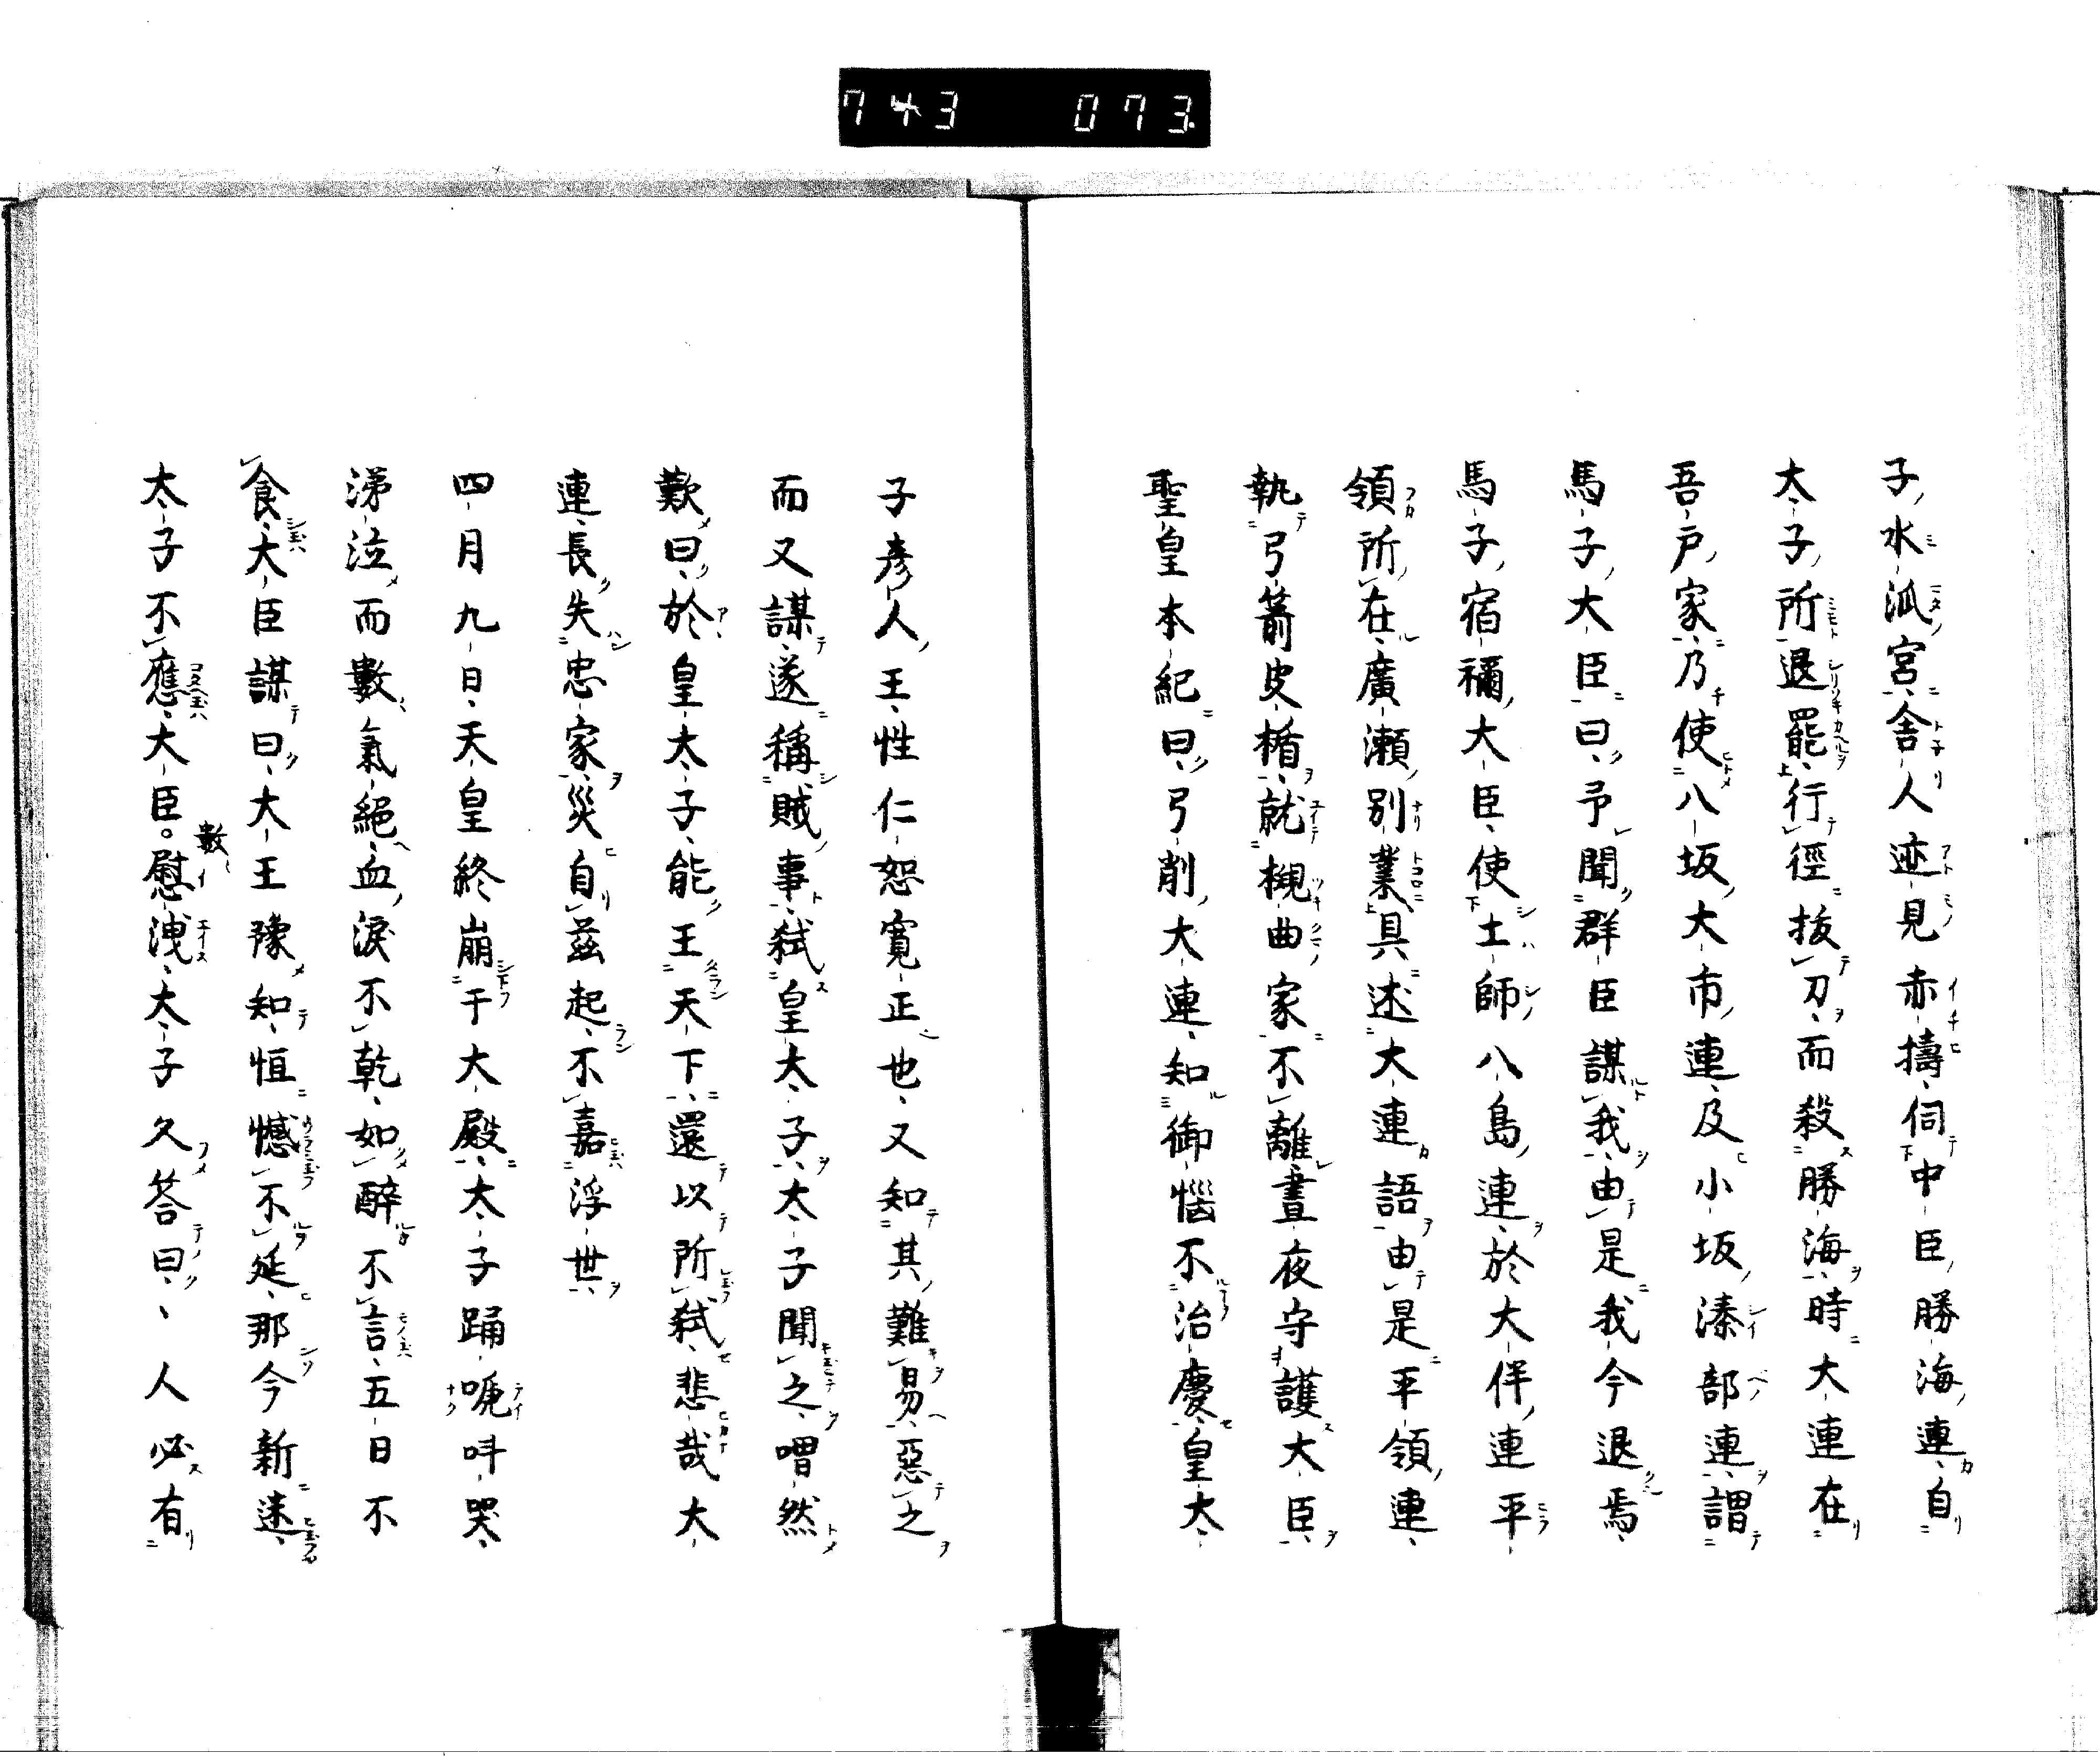 743 073.
子水泒宮舎人迹見赤擣伺中臣勝海連自
太子所退罷行徑抜刀而殺勝海時大連在
吾戸家乃使八坂大市連及小坂溱部連謂
馬子大臣曰予聞群臣謀我由是我今退焉
馬子宿禰大臣使土師八島連於大伴連平
領所在廣瀬別業具述大連語由是平領連
執弓箭皮楯就槻曲家不離晝夜守護大臣
聖皇本紀曰弓削大連知御惱不治慶皇太
子彦人王性仁恕寛正也又知其難易惡之
而又謀遂稱賊事弑皇太子太子聞之喟然
歎曰於皇太子能王天下還以所弑悲哉大
連長失忠家災自茲起不嘉浮世
四月九日天皇終崩于大殿太子踊㖒呌哭
涕泣而數氣絕血涙不乾如醉不言五日不
食大臣謀曰大王豫知恒憾不延那今新迷
太子不應大臣。數慰洩太子久答曰、人必有